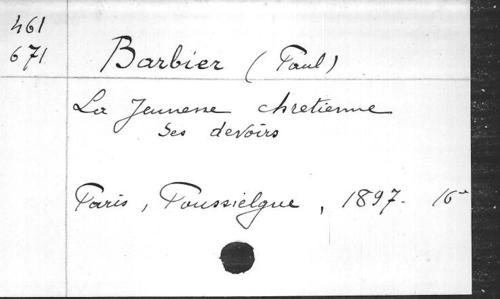 461
671
Barbier (Paul)
La Jeunesse chretienne
Ses devoirs
Paris, Poussielgue, 1897- 16°